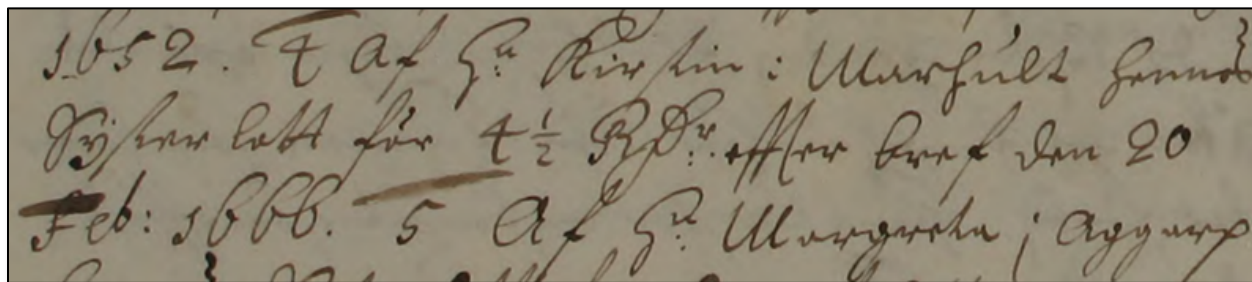 1652. 4 Af H:u Kirstin i Marhult hennes
Syster lott för 4½ RDr. effter bref den 20
Feb: 1666. 5 Af H:u Margreta i Aggarp